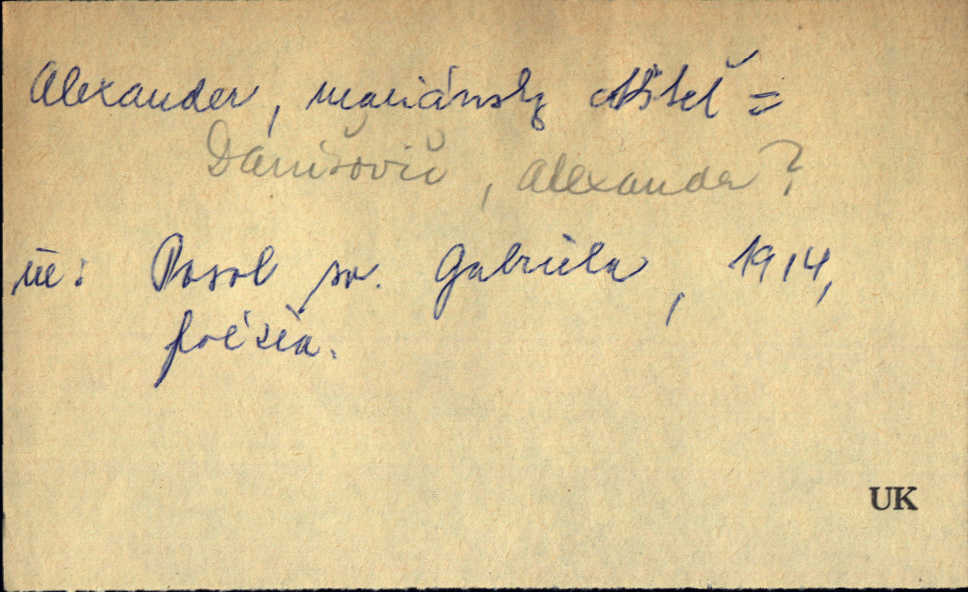 Alexander, mariánsky ctiteľ =
Danišovič, Alexander?
in: Posol sv. Gabriela, 1914,
poézia.
UK